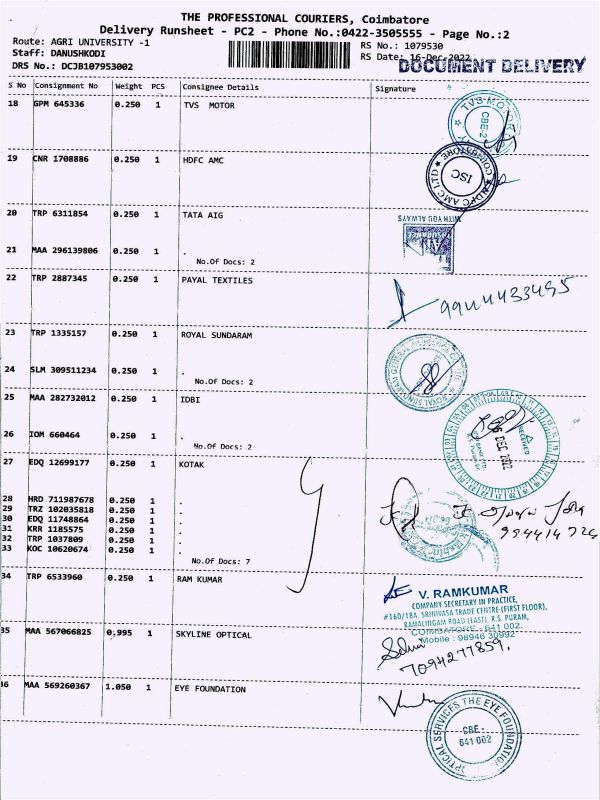 THE PROFESSIONAL COURIERS, Coimbatore
Delivery Runsheet - PC2 - Phone No.:0422-3505555 - Page No.:2
Route: AGRI UNIVERSITY -1
RS No.: 1079530
Staff: DANUSHKODI
RS Date: 16-Dec-2022
DRS No.: DCJB107953002
DOCUMENT DELIVERY
S No Consignment No Weight PCS Consignee Details Signature
18 GPM 645336 0.250 1 TVS MOTOR
TVS MOTOR
CBE-2
19 CNR 1708886 0.250 1 HDFC AMC
HDFC AMC LTD ★ COIMBATORE ★
ISC
20 TRP 6311854 0.250 1 TATA AIG
WITH YOU ALWAYS
21 MAA 296139806 0.250 1 .
No.Of Docs: 2
22 TRP 2887345 0.250 1 PAYAL TEXTILES
9944433495
23 TRP 1335157 0.250 1 ROYAL SUNDARAM
24 SLM 309511234 0.250 1 .
No.Of Docs: 2
25 MAA 282732012 0.250 1 IDBI
RECEIVED
DEC 2022
26 IOM 660464 0.250 1 .
No.Of Docs: 2
27 EDQ 12699177 0.250 1 KOTAK
28 HRD 711987678 0.250 1 .
29 TRZ 102035818 0.250 1 .
30 EDQ 11748864 0.250 1 .
31 KRR 1185575 0.250 1 .
32 TRP 1037809 0.250 1 .
33 KOC 10620674 0.250 1 .
No.Of Docs: 7
34 TRP 6533960 0.250 1 RAM KUMAR
V. RAMKUMAR
COMPANY SECRETARY IN PRACTICE,
#160/18A, SRINIVASA TRADE CENTRE (FIRST FLOOR),
RAMALINGAM ROAD (EAST), R.S. PURAM,
COIMBATORE - 641 002.
Mobile : 98946 30992
35 MAA 567066825 0.995 1 SKYLINE OPTICAL
7094277859.
36 MAA 569260367 1.050 1 EYE FOUNDATION
OPTICAL SERVICES THE EYE FOUNDATION
CBE -
641 002